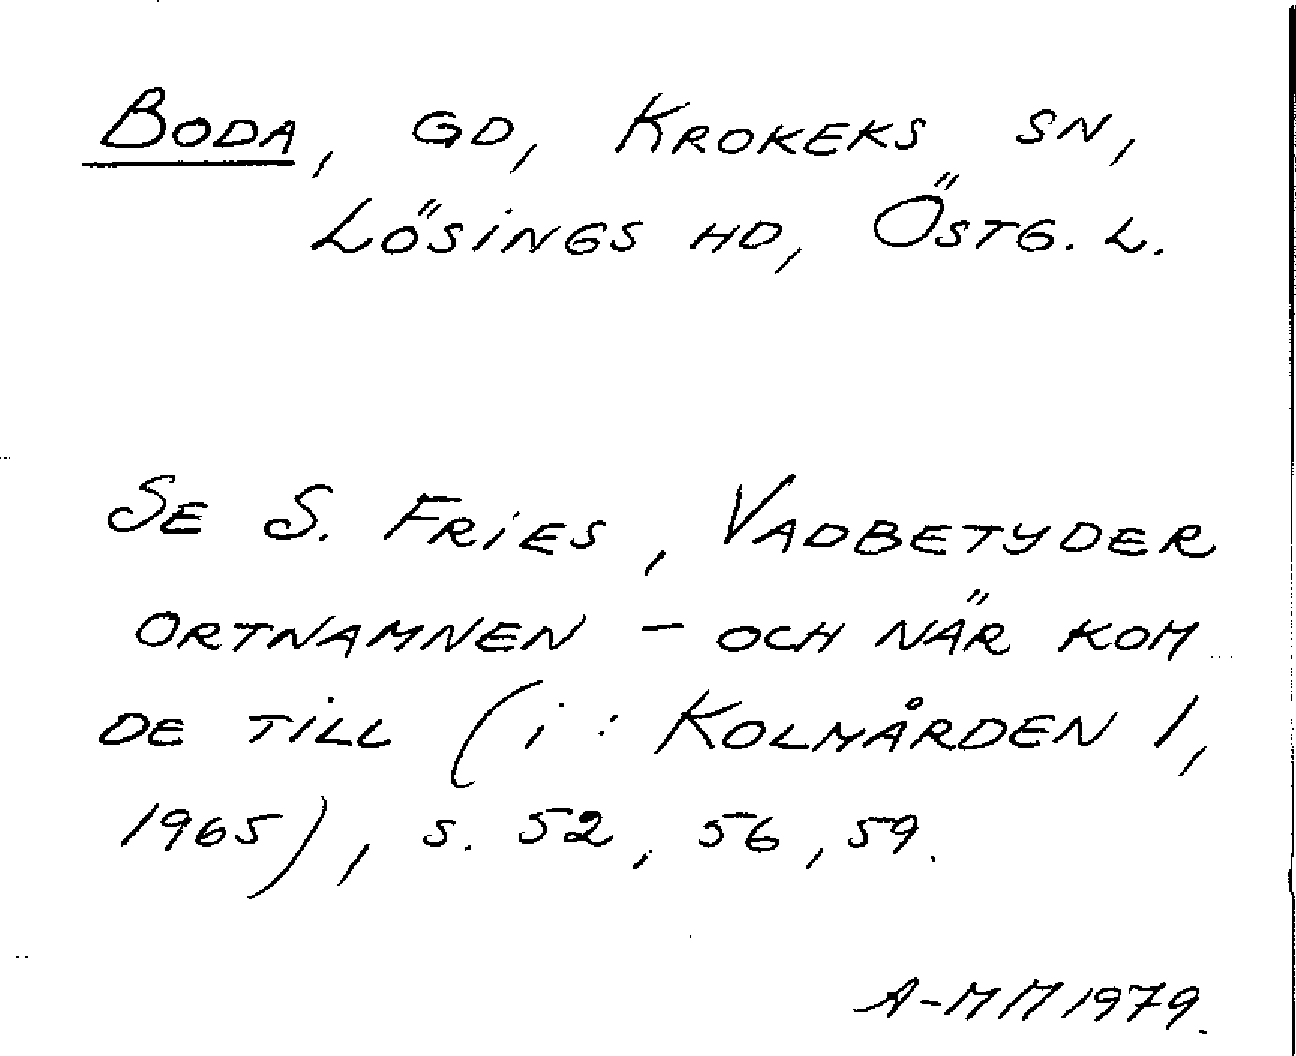 BODA, GD, KROKEKS SN,
LÖSINGS HD, ÖSTG. L.
SE S. FRIES, VADBETYDER
ORTNAMNEN - OCH NÄR KOM
DE TILL (i: KOLMÅRDEN 1,
1965), s. 52, 56, 59.
A-MM 1979.